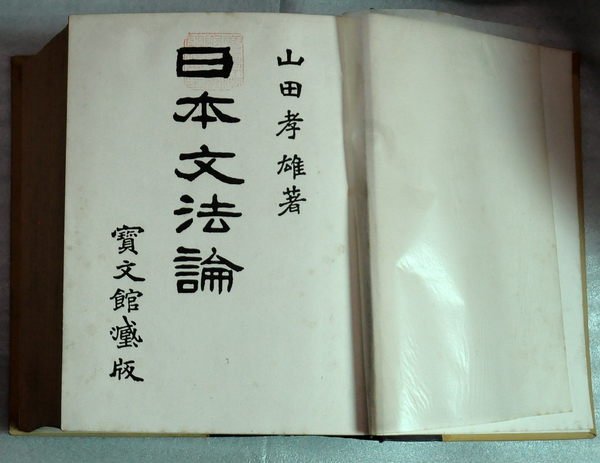 山田孝雄著
日本文法論
寶文館藏版